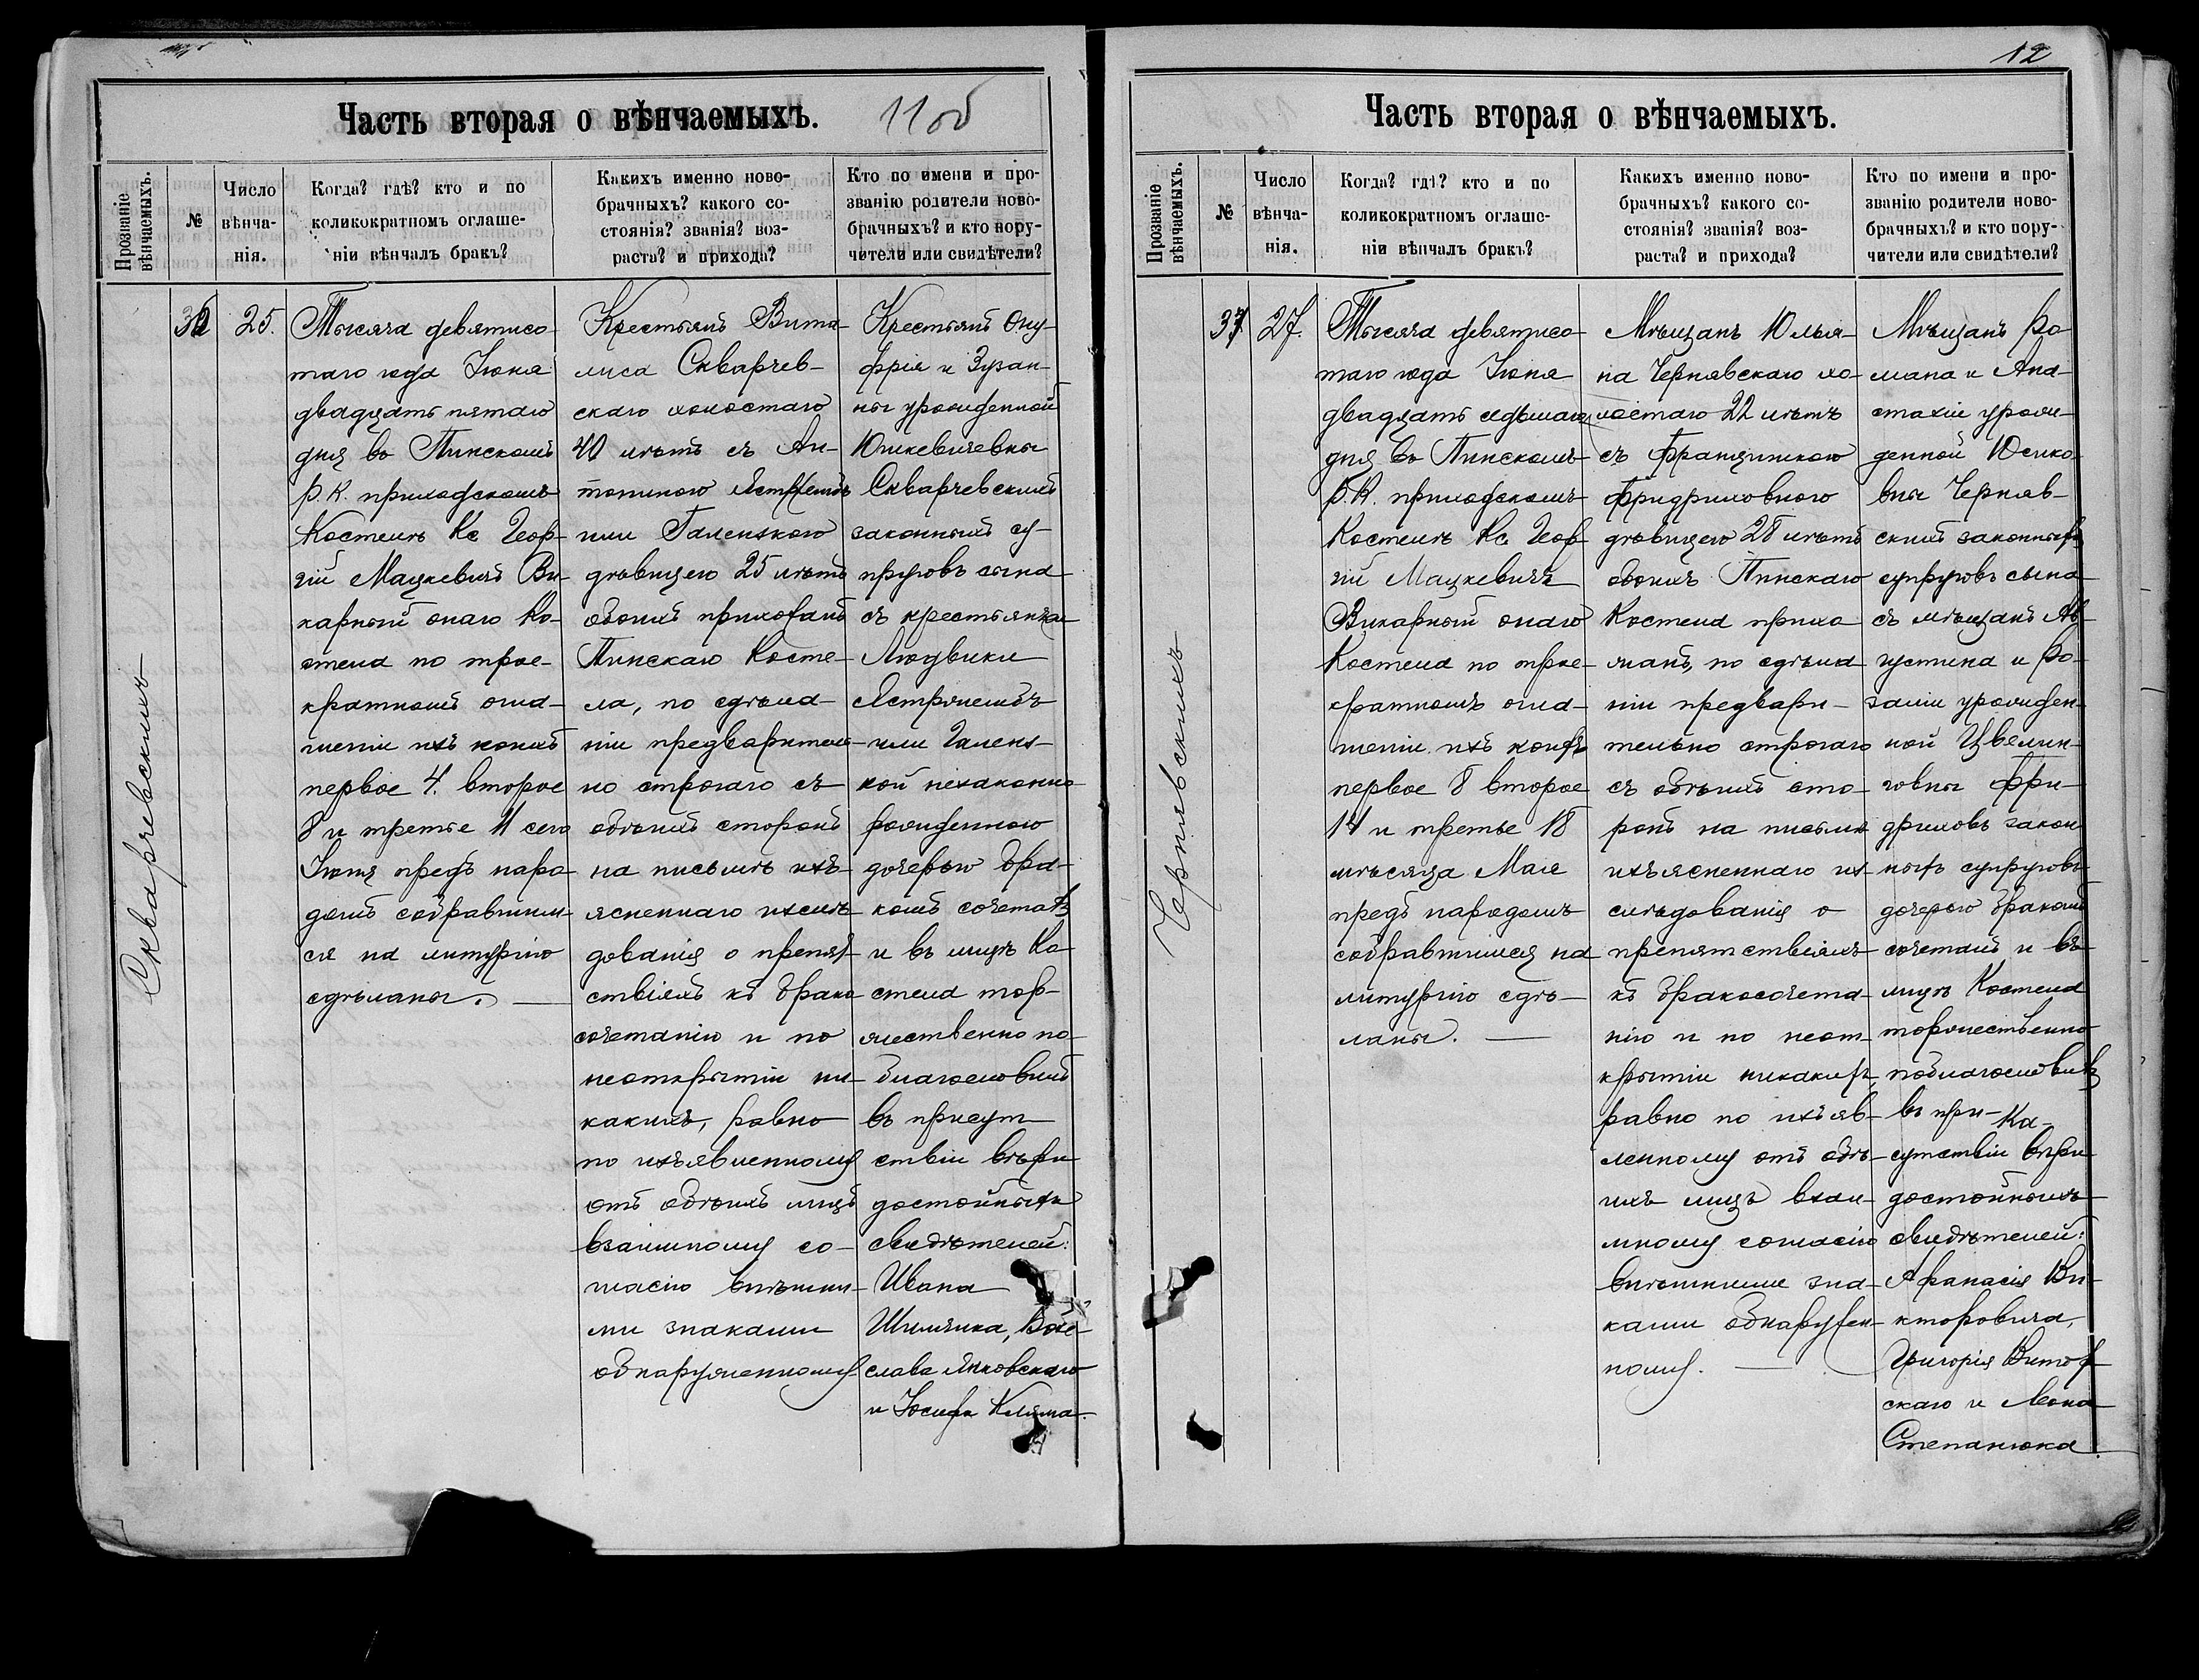 Часть вторая о вѣнчаемыхъ.
11 об
Прозваніе вѣнчаемыхъ.
№
Число
вѣнча-
нія.
Когда? гдѣ? кто и по
коликократномъ оглаше-
ніи вѣнчалъ бракъ?
Какихъ именно ново-
брачныхъ? какого со-
стоянія? званія? воз-
раста? и прихода?
Кто по имени и про-
званію родители ново-
брачныхъ? и кто пору-
чители или свидѣтели?
Скварчевскихъ
25.
Тысяча девятисо-
таго года Іюня
двадцать пятаго
дня во Пинскомъ
Р. К. приходскомъ
Костелѣ Кс Геор-
гій Мацкевичъ Ви-
карный онаго Ко-
стела по трое-
кратномъ огла-
шеніи изъ коихъ
первое 4. второе
8 и третье 11 сего
Іюня предъ наро-
домъ собравшим-
ся на литургію
сдѣланы. —
Крестьянъ Вита-
лиса Скварчев-
скаго холостаго
40 лѣтъ съ Ан-
тониною Ястржембъ
или Галенскою
дѣвицею 25 лѣтъ
обоихъ прихожанъ
Пинскаго Косте-
ла, по сдѣла-
ніи предваритель-
но строгаго съ
обѣихъ сторонъ
на письмѣ изъ-
ясненнаго изслѣ-
дованія о препят-
ствіяхъ къ брако
сочетанію и по
неоткрытіи ни-
какихъ, равно
по изъявленному
отъ обѣихъ лицъ
взаимному со-
гласію внѣшни-
ми знаками
обнаруженному
Крестьянъ Ону-
фрія и Зузан-
ны урожденной
Юшкевичевны
Скварчевскихъ
законныхъ су-
пруговъ сына
съ крестьянки
Людвики
Ястржембъ
или Гален-
кой незаконно
рожденною
дочерью бра-
комъ сочеталъ
и въ лицѣ Ко-
стела тор-
жественно по-
благословилъ
въ присут-
ствіи вѣри
достойныхъ
свидѣтелей:
Ивана
Шимчика, Воле-
слава Янковскаго
и Іосифа Клима.
12
Часть вторая о вѣнчаемыхъ.
Прозваніе вѣнчаемыхъ.
№
Число
вѣнча-
нія.
Когда? гдѣ? кто и по
коликократномъ оглаше-
ніи вѣнчалъ бракъ?
Какихъ именно ново-
брачныхъ? какого со-
стоянія? званія? воз-
раста? и прихода?
Кто по имени и про-
званію родители ново-
брачныхъ? и кто пору-
чители или свидѣтели?
Чернявскихъ
37
27.
Тысяча девятисо-
таго года Іюня
двадцать седьмаго
дня во Пинскомъ
Р. К. приходскомъ
Костелѣ Кс Геор-
гій Мацкевичъ
Викарный онаго
Костела по трое-
кратномъ огла-
шеніи изъ коихъ
первое 8 второе
14 и третье 18
мѣсяца Мая
предъ народомъ
собравшимся на
литургію сдѣ-
ланы. —
Мѣщанъ Юлья-
на Чернявскаго хо-
лостаго 22 лѣтъ
съ Францишкою
Фридриховною
дѣвицею 28 лѣтъ
обоихъ Пинскаго
Костела прихо-
жанъ, по сдѣла-
ніи предвари-
тельно строгаго
съ обѣихъ сто-
ронъ на письмѣ
изъясненнаго из-
слѣдованія о
препятствіяхъ
къ бракосочета-
нію и по неот-
крытіи никакихъ,
равно по изъяв-
ленному отъ обѣ-
ихъ лицъ взаи-
мному согласію
внѣшними зна-
ками обнаружен-
ному. —
Мѣщанъ Ро-
мана и Ана-
стазіи урож-
денной Юсько-
вны Черняв-
скихъ законныхъ
супруговъ сына
съ мѣщанъ Ав-
густина и Ро-
заліи урожден-
ной Цвелин-
говны Фри-
дриховъ закон
ныхъ супруговъ
дочерью бракомъ
сочеталъ и въ
лицѣ Костела
торжественно
поблагословилъ
въ при-
сутствіи вѣри
достойныхъ
свидѣтелей:
Афанасія Ви-
кторовича,
Григорія Витор-
скаго и Леона
Степанюка